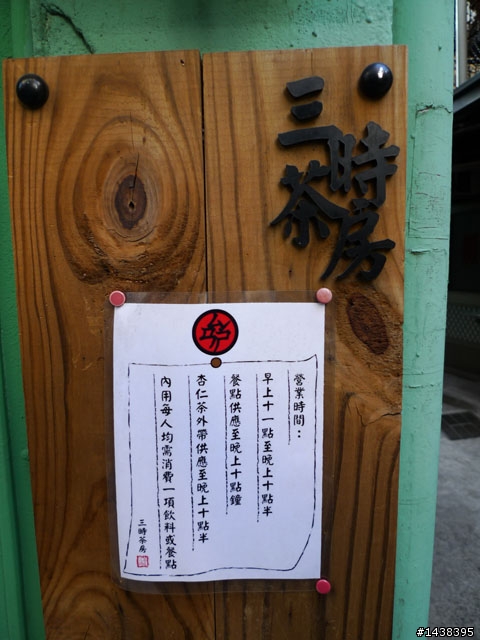 三時茶房
營業時間：
早上十一點至晚上十點半
餐點供應至晚上十點鐘
杏仁茶外帶供應至晚上十點半
內用每人均需消費一項飲料或餐點
三時茶房
#1438395